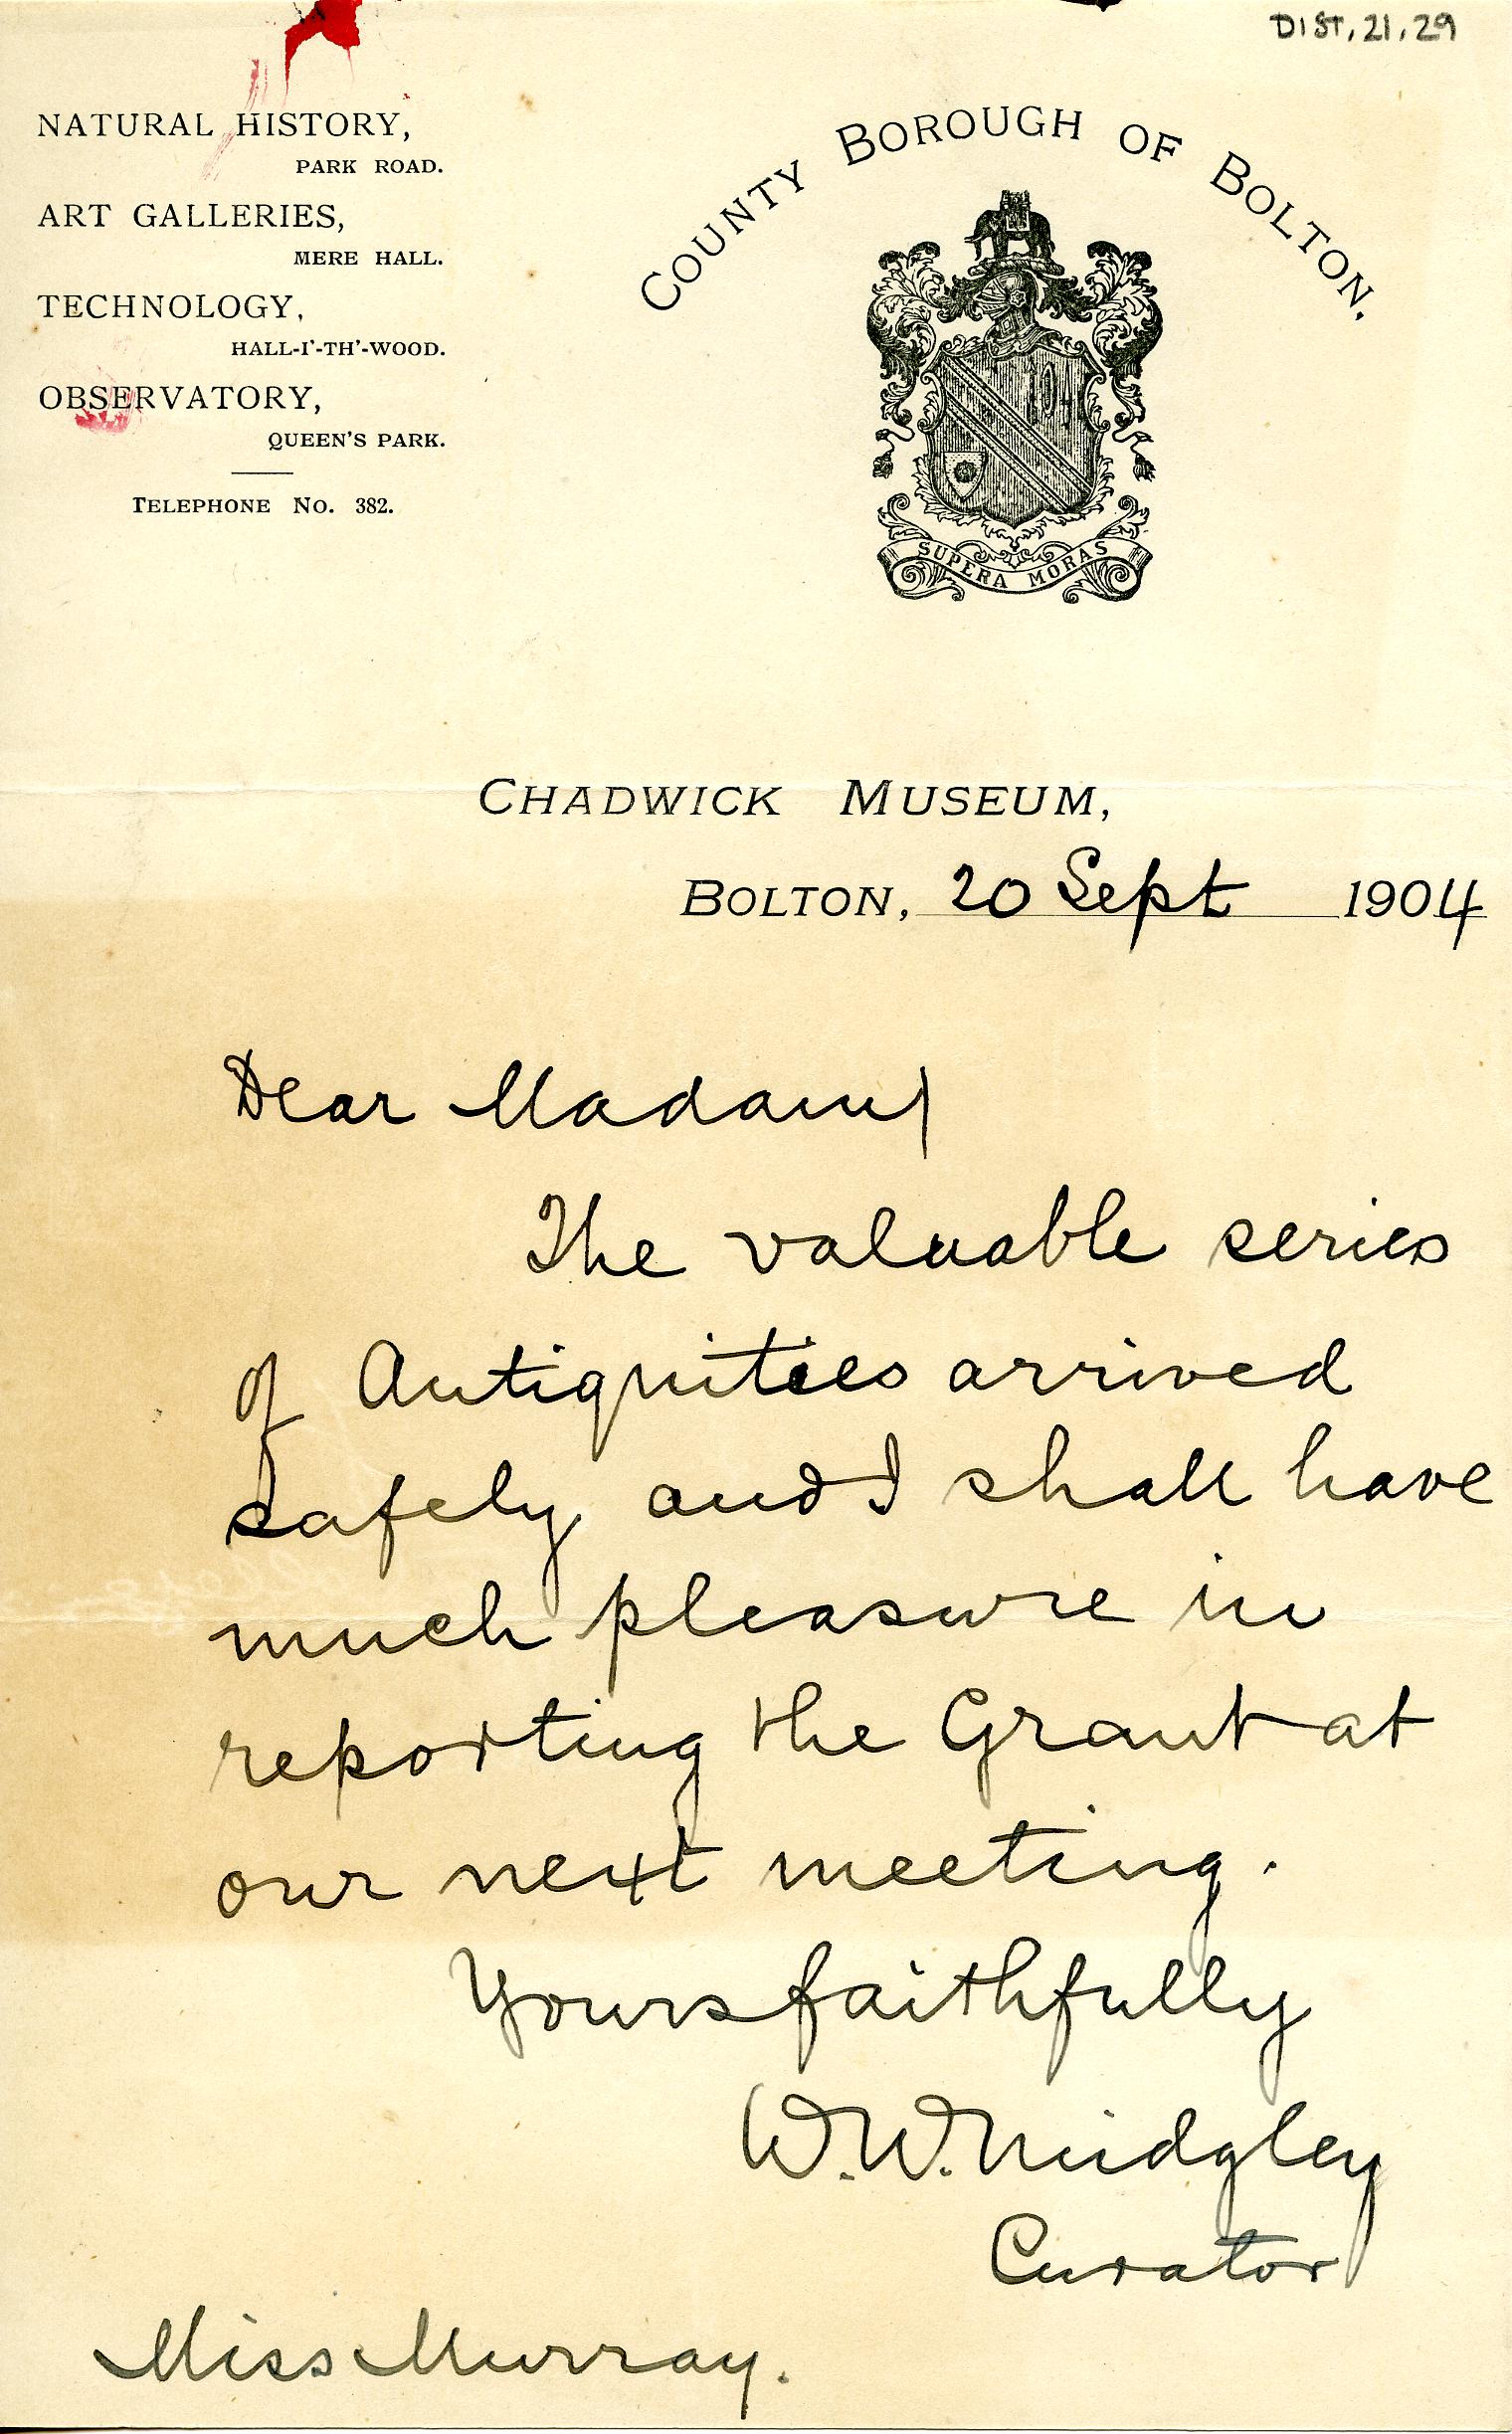 DIST. 21. 29
NATURAL HISTORY,
PARK ROAD.
ART GALLERIES,
MERE HALL.
TECHNOLOGY,
HALL-I'-TH'-WOOD.
OBSERVATORY,
QUEEN'S PARK.
TELEPHONE No. 382.
COUNTY BOROUGH OF BOLTON.
SUPERA MORAS
CHADWICK MUSEUM,
BOLTON, 20 Sept 1904
Dear Madam/
The valuable series
of Antiquities arrived
safely and I shall have
much pleasure in
reporting the Grant at
our next meeting.
Yours faithfully
W. W. Midgley
Curator
Miss Murray.